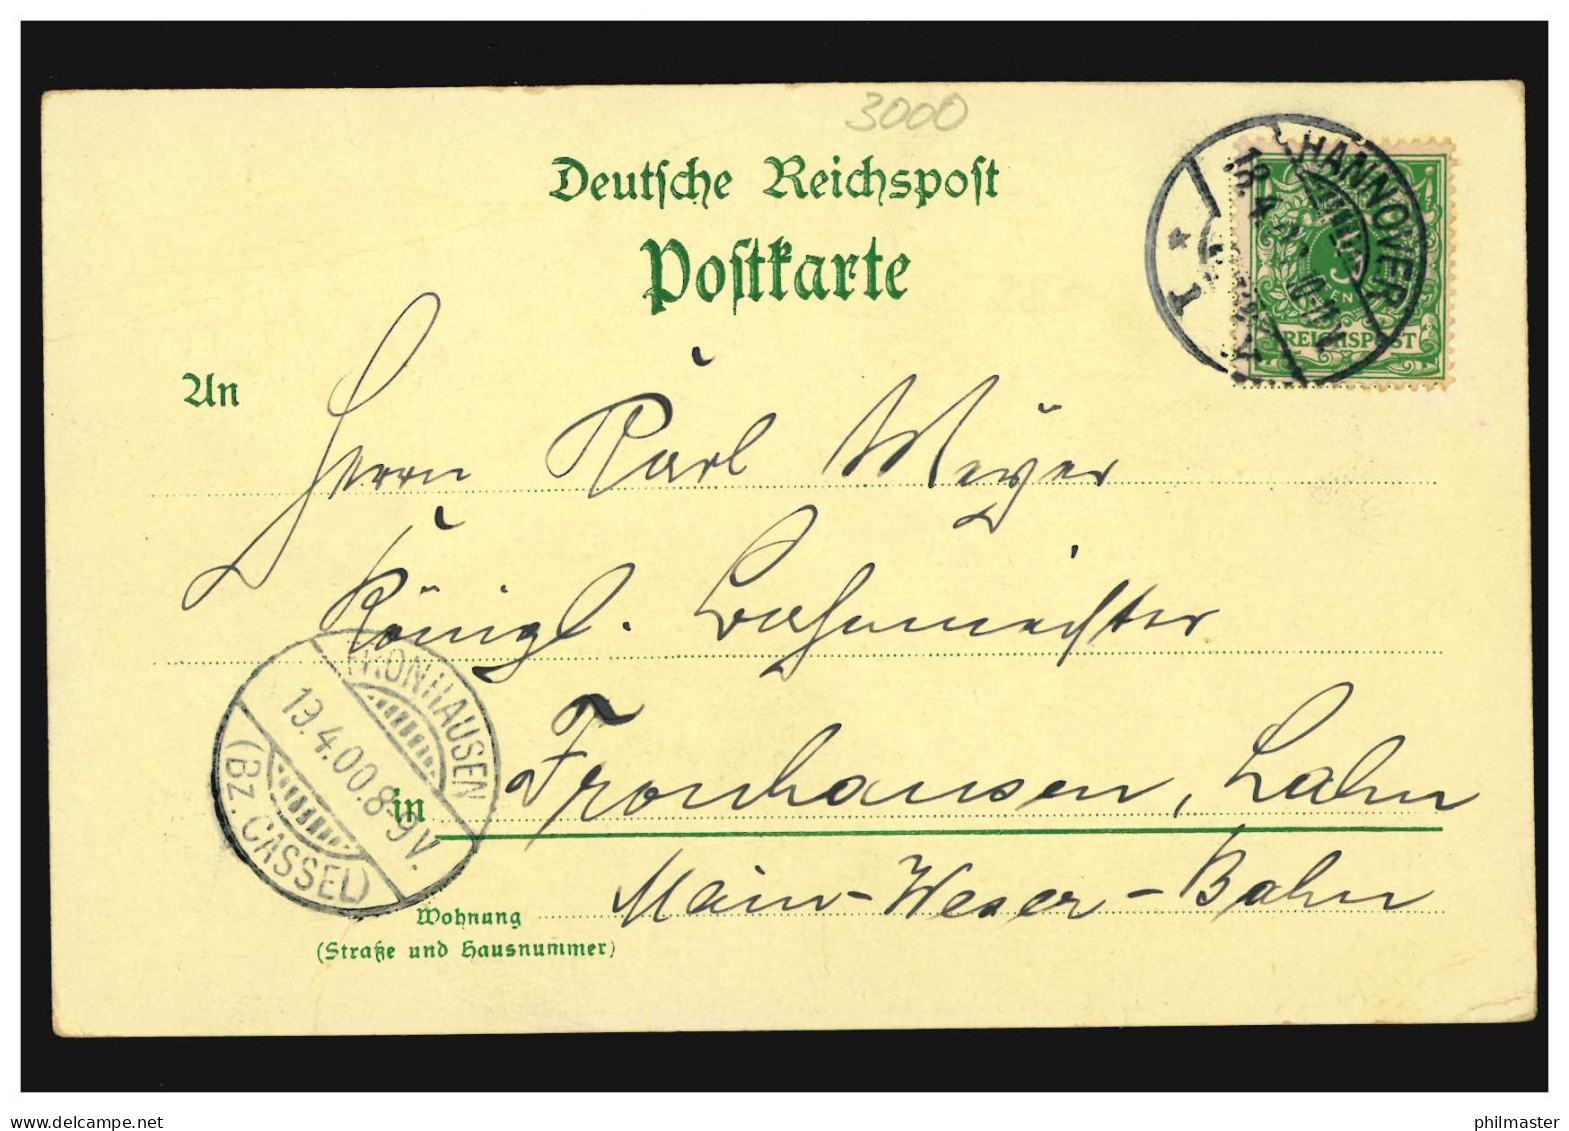 3000
Deutsche Reichspost
Postkarte
HANNOVER
1
REICHSPOST
An
Herrn Karl Meyer
Königl. Bahnmeister
FRONHAUSEN
13.4.00.8-9V.
(BZ. CASSEL)
in Fronhausen, Lahn
Main-Weser-Bahn
Wohnung
(Straße und Hausnummer)
www.delcampe.net
philmaster